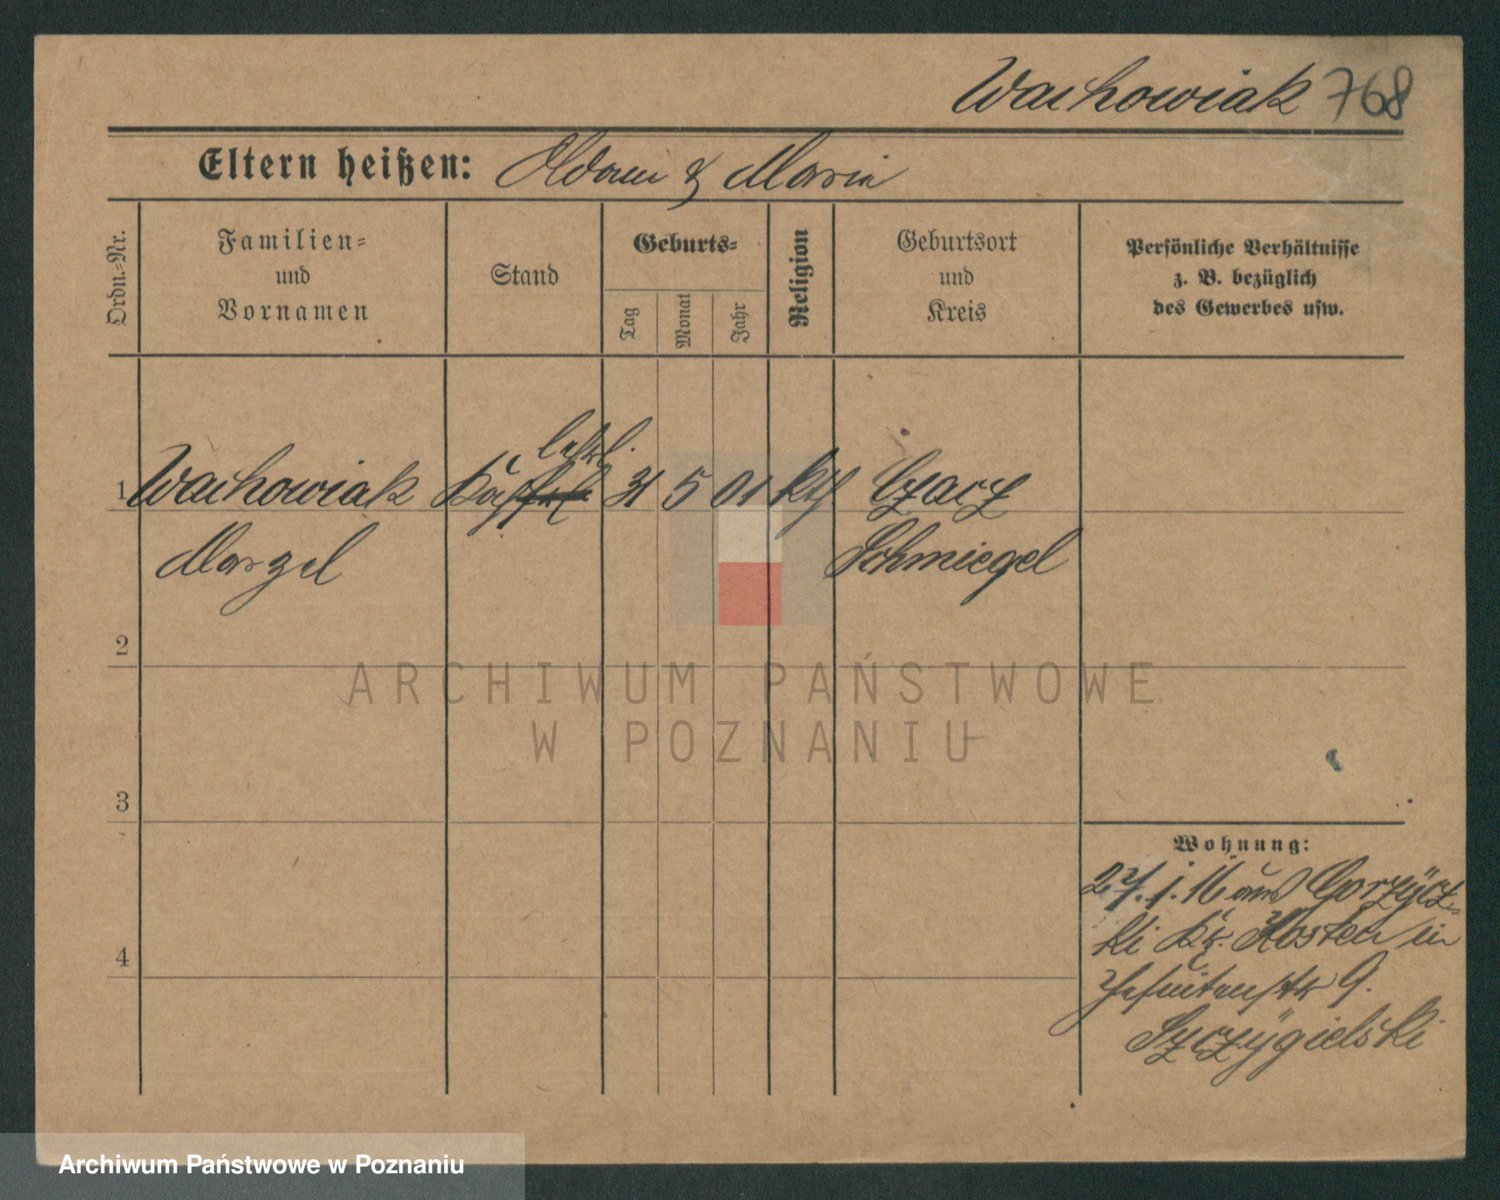 Wachowiak 768
Eltern heißen: Adam & Maria
Ordn.=Nr.
Familien=
und
Vornamen
Stand
Geburts=
Tag
Monat
Jahr
Religion
Geburtsort
und
Kreis
Persönliche Verhältnisse
z. B. bezüglich
des Gewerbes usw.
1 Wachowiak 31 5 01 kth Czacz
Marzel Schmiegel
2
3
4
Wohnung:
27.1.16 aus Gorzycz-
ki Kr. Kosten in
Jesuitenstr 9.
Szczygielski
ARCHIWUM PAŃSTWOWE
W POZNANIU
Archiwum Państwowe w Poznaniu